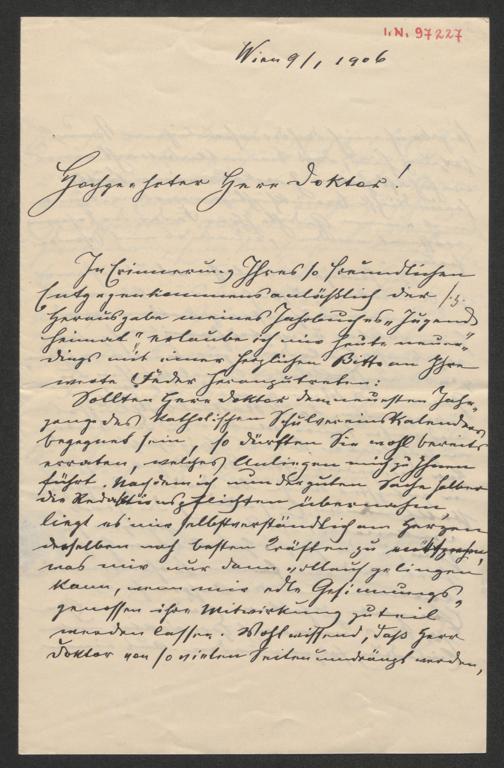 I.N. 97227
Wien 9/1 1906
Hochgeehrter Herr Doktor!
In Erinnerung Ihres so freundlichen
Entgegenkommens anläßlich der
Herausgabe meines Jahrbuches „Jugend-
heimat" erlaube ich mir heute neuer-
dings mit einer herzlichen Bitte an Ihre
werte Feder heranzutreten:
Sollten Herr Doktor dem neuesten Jahr-
gang des Katholischen Schulvereinskalenders
begegnet sein, so dürften Sie wohl bereits
erraten, welches Anliegen mich zu Ihnen
führt. Nachdem ich nun der guten Sache halber
die Redaktionspflichten übernahm,
liegt es mir selbstverständlich am Herzen
denselben nach besten Kräften zu entsprechen,
was mir nur dann vollauf gelingen
kann, wenn mir edle Gesinnungs-
genossen ihre Mitwirkung zuteil
werden lassen. Wohl wissend, daß Herr
Doktor von so vielen Seiten umdrängt werden,